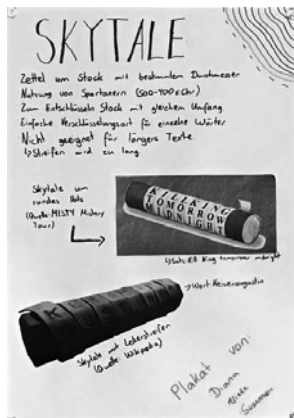 SKYTALE
Zettel um Stock mit bestimmten Durchmesser
Nutzung von Spartanern (500-400 v.Chr)
Zum Entschlüsseln Stock mit gleichen Umfang
Einfache Verschlüsselungsart für einzelne Wörter
Nicht geeignet für längere Texte
↳ Streifen wird zu lang
Skytale um
rundes Holz
(Quelle: MISTY
Tour)
KILL KING
TOMORROW
MIDNIGHT
↳ Satz: Kill King tomorrow midnight
→ Wort
Skytale mit Lederstreifen
(Quelle: Wikipedia)
Plakat von:
Diana